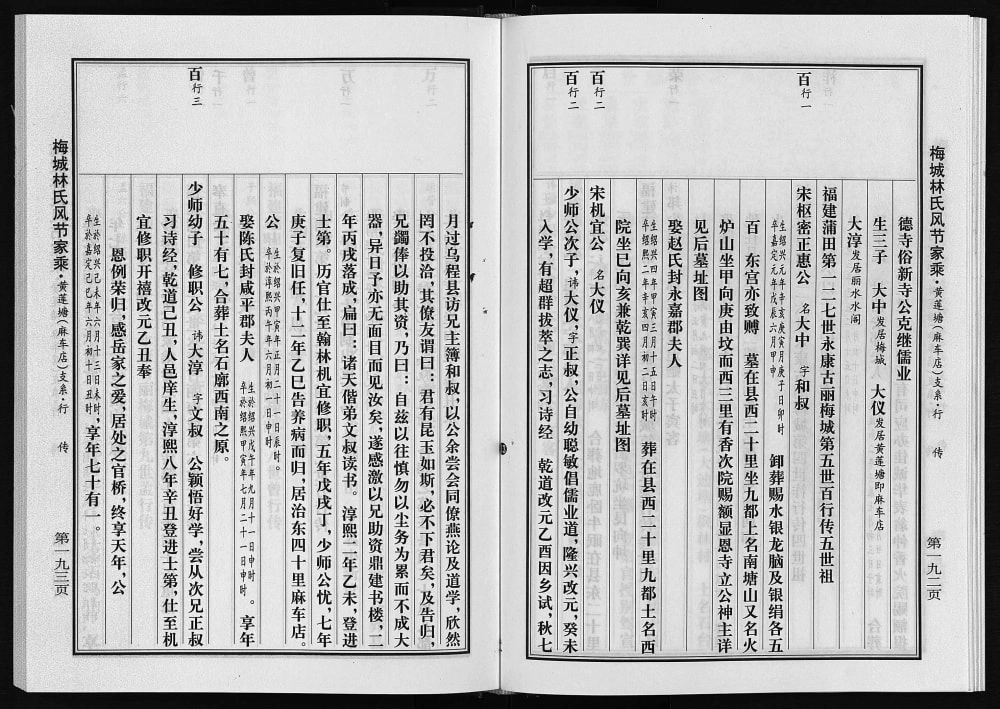 梅城林氏风节家乘·黄莲塘（麻车店）支系·行 传 第一九二页
德寺俗新寺公克继儒业
生三子 大中发居梅城 大仪发居黄莲塘即麻车店
大淳发居丽水水阁
福建莆田第一二七世永康古丽梅城第五世百行传五世祖
百行一
宋枢密正惠公 名大中 字和叔
生绍兴元年辛亥庚寅月庚子日卯时
卒嘉定元年戊辰六月 时 卸葬赐水银龙脑及银绢各五
百 东宫亦致赙 墓在县西二十里坐九都土名南塘山又名火
炉山坐甲向庚由坟而西三里有香次院赐额显恩寺立公神主详
见后墓址图
娶赵氏封永嘉郡夫人
生绍兴四年甲寅三月十五日午时
卒绍熙二年辛亥四月初二日亥时 葬在县西二十里九都土名西
院坐巳向亥兼乾巽详见后墓址图
百行二
宋机宜公 名大仪
百行二
少师公次子，讳大仪，字正叔，公自幼聪敏倡儒业道，隆兴改元，癸未
入学，有超群拔萃之志，习诗经 乾道改元乙酉因乡试，秋七
月过乌程县访兄主簿和叔，以公余尝会同僚燕论及道学，欣然
罔不投洽，其僚友谓曰：君有昆玉如斯，必不下君矣，及告归，
兄蠲俸以助其资，乃曰：自兹以往慎勿以尘务为累而不成大
器，异日予亦无面目而见汝矣，遂感激以兄助资鼎建书楼，二
年丙戌落成，扁曰：诸天偕弟文叔读书。 淳熙二年乙未，登进
士第。历官仕至翰林机宜修职，五年戊戌丁，少师公忧，七年
庚子复旧任，十二年乙巳告养病而归，居治东四十里麻车店。
公
生於绍兴甲寅年正月二十日辰时。
卒於淳熙丙午年六月初一日申时。
娶陈氏封咸平郡夫人
生於绍兴戊午年九月十一日申时
卒於绍熙甲寅年七月二十一日申时 。享年
五十有七，合葬土名石廓西南之原。
百行三
少师幼子 修职公 讳大淳 字文叔 公颖悟好学，尝从次兄正叔
习诗经，乾道己丑，人邑庠生，淳熙八年辛丑登进士第，仕至机
宜修职开禧改元乙丑奉
恩例荣归，感岳家之爱，居处之官桥，终享天年，公
生於绍兴己未年六月十三日未时，
卒於嘉定己巳年六月初十日丑时 ，享年七十有一。
梅城林氏风节家乘·黄莲塘（麻车店）支系·行 传 第一九三页